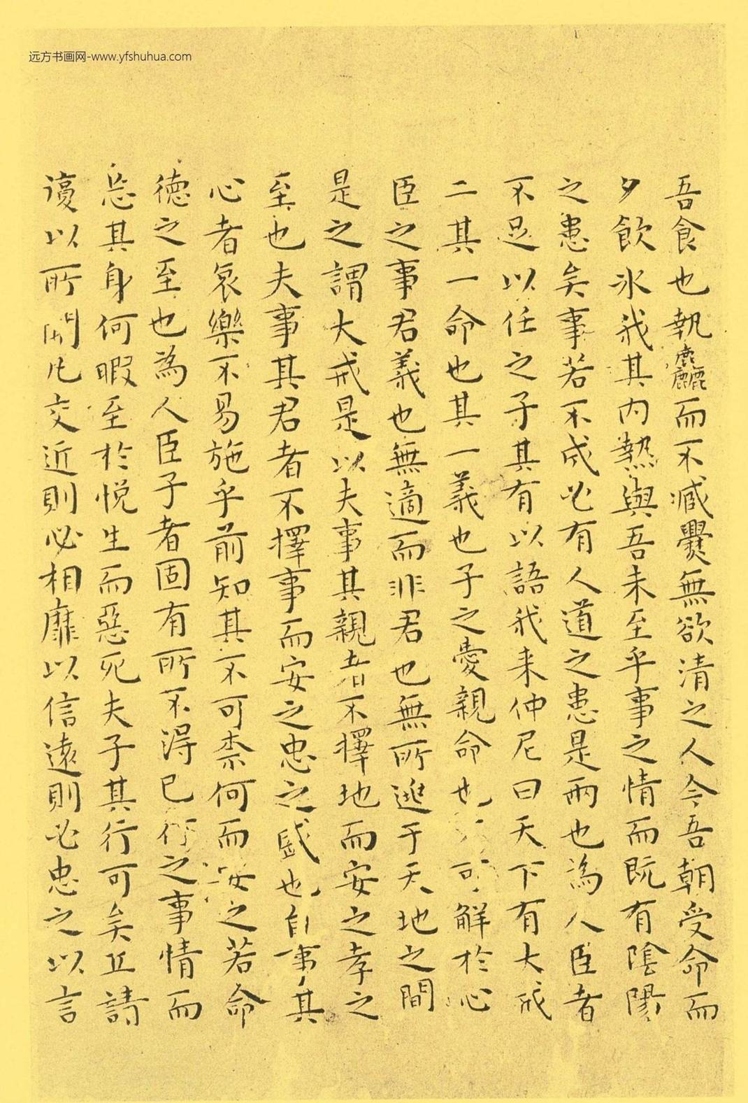 远方书画网-www.yfshuhua.com
吾食也執麤而不臧爨無欲清之人今吾朝受命而
夕飲冰我其内熱與吾未至乎事之情而既有陰陽
之患矣事若不成必有人道之患是兩也為人臣者
不足以任之子其有以語我来仲尼曰天下有大戒
二其一命也其一義也子之愛親命也不可解於心
臣之事君義也無適而非君也無所逃于天地之間
是之謂大戒是以夫事其親者不擇地而安之孝之
至也夫事其君者不擇事而安之忠之盛也自事其
心者哀樂不易施乎前知其不可柰何而安之若命
德之至也為人臣子者固有所不得已行之事情而
忘其身何暇至於悅生而惡死夫子其行可矣丘請
復以所聞凡交近則必相靡以信遠則必忠之以言